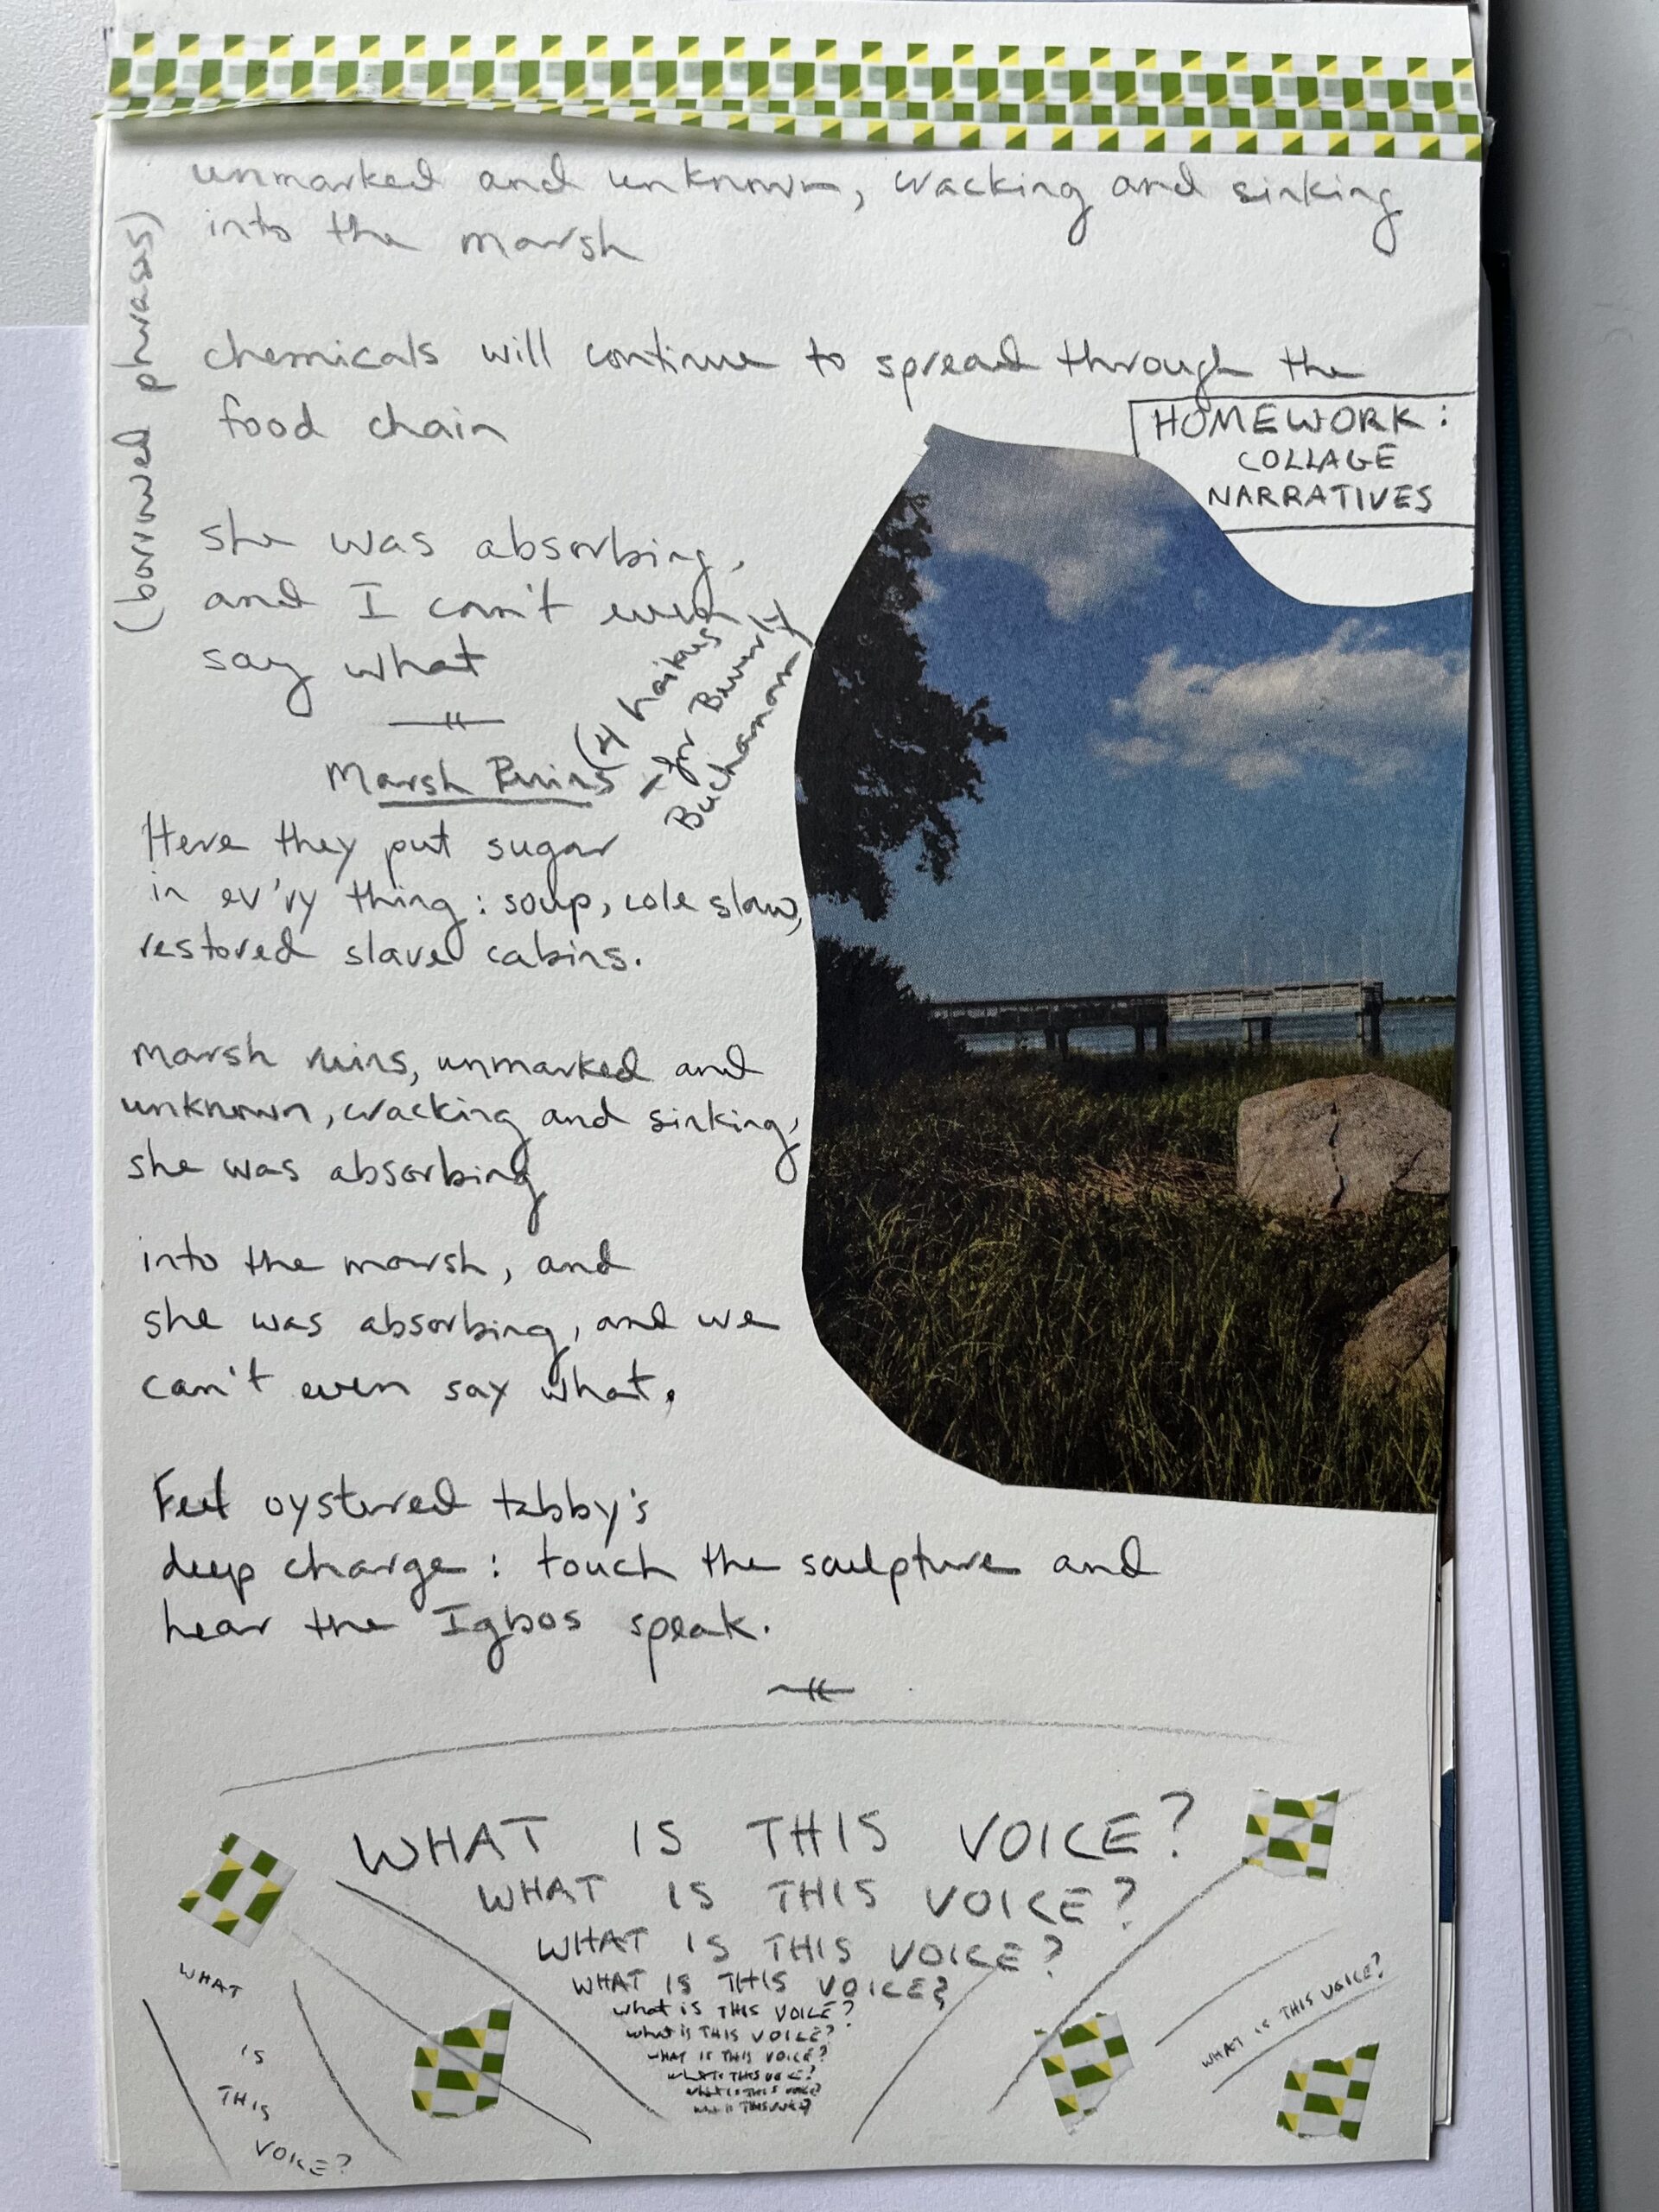 unmarked and unknown, cracking and sinking
into the marsh
(borrowed phrases)
chemicals will continue to spread through the
food chain
HOMEWORK:
COLLAGE
NARRATIVES
she was absorbing,
and I can't even
say what
Marsh Ruins
(4 haikus
for Beverly
Buchanan)
Here they put sugar
in ev'ry thing: soup, cole slaw,
restored slave cabins.
marsh ruins, unmarked and
unknown, cracking and sinking,
she was absorbing
into the marsh, and
she was absorbing, and we
can't even say what.
Feel oystered tabby's
deep charge: touch the sculpture and
hear the Igbos speak.
WHAT IS THIS VOICE?
WHAT IS THIS VOICE?
WHAT IS THIS VOICE?
WHAT IS THIS VOICE?
What is THIS VOICE?
What is THIS VOICE?
WHAT IS THIS VOICE?
WHAT IS THIS VOICE?
WHAT IS THIS VOICE?
WHAT IS THIS VOICE?
WHAT
IS
THIS
VOICE?
WHAT IS THIS VOICE?